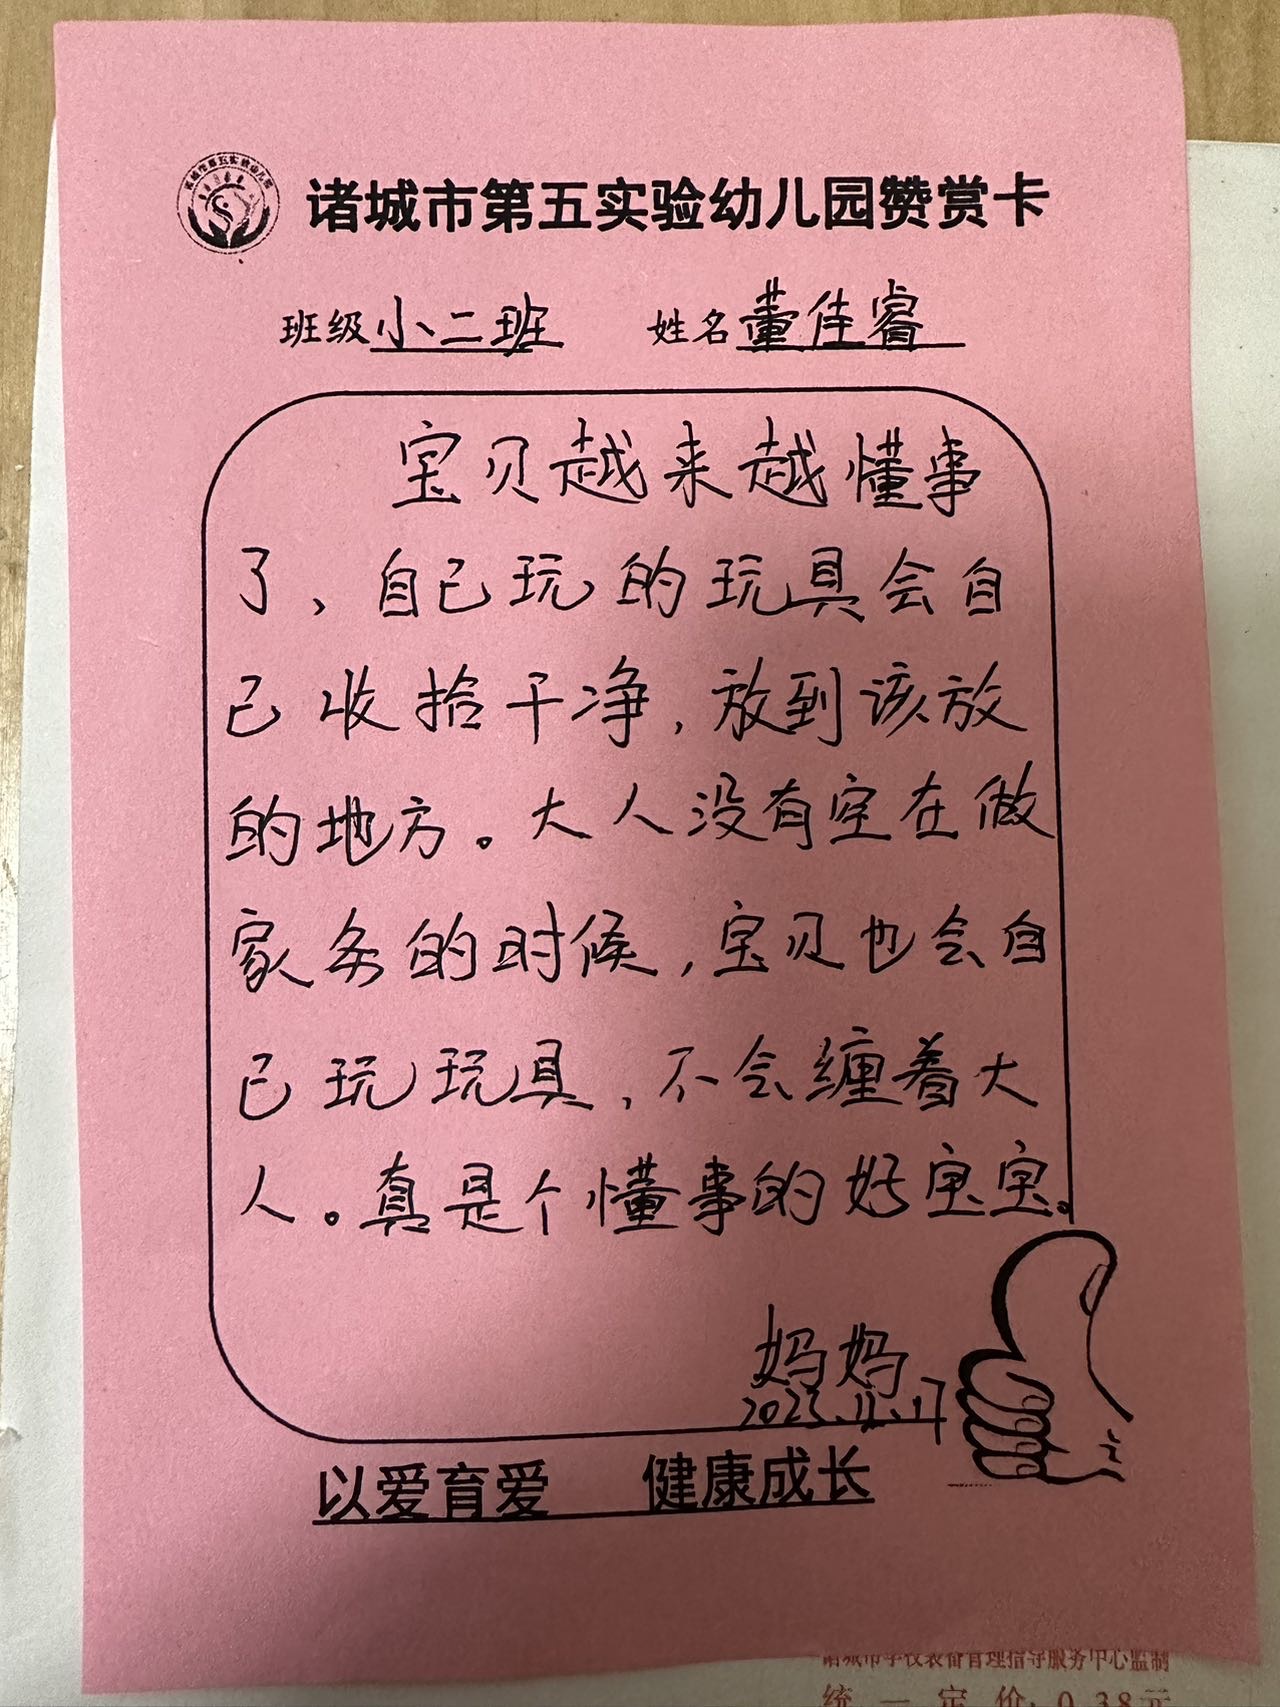 诸城市第五实验幼儿园
诸城市第五实验幼儿园赞赏卡
班级小二班 姓名董佳睿
宝贝越来越懂事
了、自己玩的玩具会自
己收拾干净,放到该放
的地方。大人没有空在做
家务的时候,宝贝也会自
己玩玩具,不会缠着大
人。真是个懂事的好宝宝。
妈妈
2023.11.17
以爱育爱 健康成长
诸城市学校装备管理指导服务中心监制
统一定价:0.38元